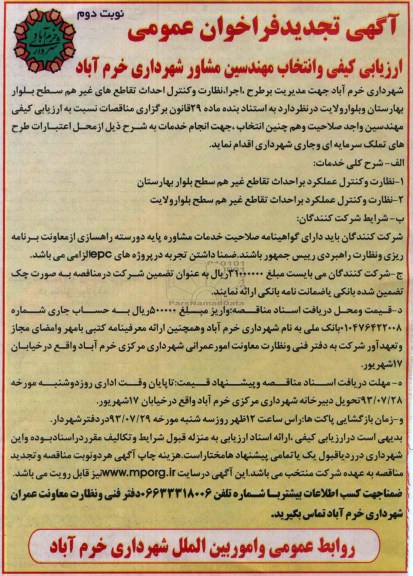 نوبت دوم
آگهی تجدیدفراخوان عمومی
ارزیابی کیفی وانتخاب مهندسین مشاور شهرداری خرم آباد
شهرداری خرم آباد جهت مدیریت برطرح ،اجرا،نظارت وکنترل احداث تقاطع های غیر هم سطح بلوار
بهارستان وبلوارولایت درنظردارد به استناد بنده ماده ۲۹قانون برگزاری مناقصات نسبت به ارزیابی کیفی
مهندسین واجد صلاحیت وهم چنین انتخاب ،جهت انجام خدمات به شرح ذیل ازمحل اعتبارات طرح
های تملک سرمایه ای وجاری شهرداری اقدام نماید.
الف- شرح کلی خدمات:
۱-نظارت وکنترل عملکرد براحداث تقاطع غیر هم سطح بلوار بهارستان
۲-نظارت وکنترل عملکرد براحداث تقاطع غیر هم سطح بلوارولایت
ب- شرایط شرکت کنندگان:
شرکت کنندگان باید دارای گواهینامه صلاحیت خدمات مشاوره پایه دورسته راهسازی ازمعاونت برنامه
ریزی ونظارت راهبردی رییس جمهور باشند.ضمنا داشتن تجربه درپروژه های epcالزامی می باشد.
ج-شرکت کنندگان می بایست مبلغ ریال به عنوان تضمین شرکت درمناقصه به صورت چک
تضمین شده بانکی یاضمانت نامه بانکی ارائه نمایند.
د-قیمت ومحل دریافت اسناد مناقصه:واریز مبلغ ۵۰۰۰۰۰ریال به حساب جاری شماره
۰۱۰۴۷۶۴۲۲۰۰۸بانک ملی به نام شهرداری خرم آباد وهمچنین ارائه معرفینامه کتبی بامهر وامضای مجاز
وتعهدآور شرکت به دفتر فنی ونظارت معاونت امورعمرانی شهرداری مرکزی خرم آباد واقع درخیابان
۱۷شهریور.
ه- مهلت دریافت اسناد مناقصه وپیشنهاد قیمت:تاپایان وقت اداری روزدوشنبه مورخه
۹۳/۰۷/۲۸تحویل دبیرخانه شهرداری مرکزی خرم آباد واقع درخیابان ۱۷شهریور.
و-زمان بازگشایی پاکت ها:راس ساعت ۱۲ظهر روزسه شنبه مورخه ۹۳/۰۷/۲۹دردفترشهردار.
بدیهی است درارزیابی کیفی ،ارائه اسناد ارزیابی به منزله قبول شرایط وتکالیف مقرردراسنادبوده واین
شهرداری درردیاقبول یک یاتمامی پیشنهاد هامختاراست.هزینه چاپ آگهی هردونوبت مناقصه وتجدید
مناقصه به عهده شرکت منتخب می باشد.این آگهی درسایت www.mporg.irنیز قابل رویت می باشد.
ضمناجهت کسب اطلاعات بیشتربا شماره تلفن ۰۶۶۳۳۳۱۸۰۰۶دفتر فنی ونظارت معاونت عمران
شهرداری خرم آباد تماس بگیرید.
روابط عمومی واموربین الملل شهرداری خرم آباد